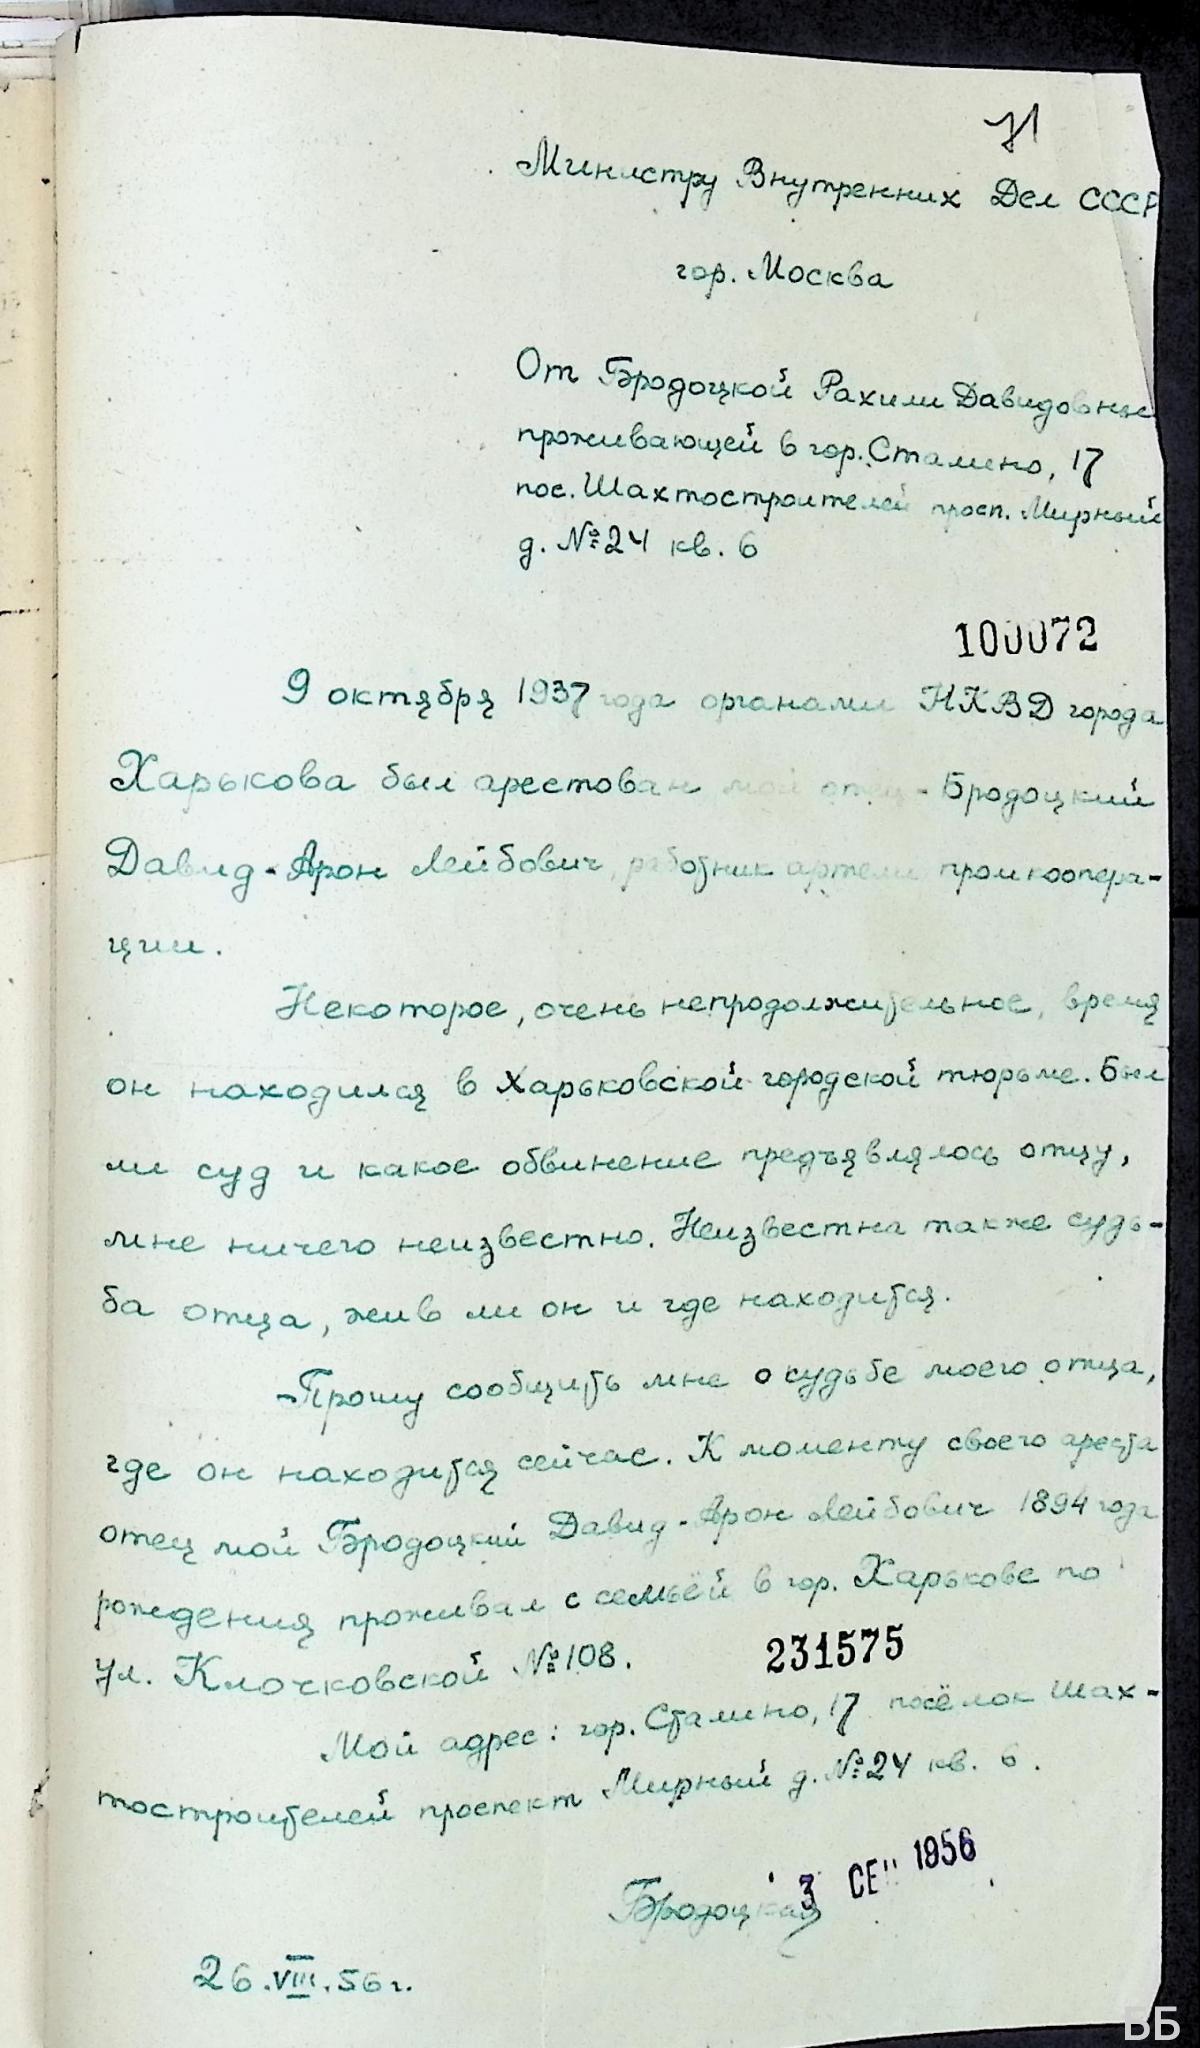 71
Министру Внутренних Дел СССР
гор. Москва
От Бродоцкой Рахили Давидовны
проживающей в гор. Сталино, 17
пос. Шахтостроителей просп. Мирный
д. №24 кв. 6
100072
9 октября 1937 года органами НКВД города
Харькова был арестован мой отец - Бродоцкий
Давид-Арон Лейбович, работник артели промкоопера-
ции.
Некоторое, очень непродолжительное, время
он находился в Харьковской городской тюрьме. Был
ли суд и какое обвинение предъявлялось отцу,
мне ничего неизвестно. Неизвестна также судь-
ба отца, жив ли он и где находится.
Прошу сообщить мне о судьбе моего отца,
где он находится сейчас. К моменту своего ареста
отец мой Бродоцкий Давид-Арон Лейбович 1894 года
рождения проживал с семьёй в гор. Харькове по
ул. Клочковской №108.
231575
Мой адрес: гор. Сталино, 17 посёлок Шах-
тостроителей проспект Мирный д. №24 кв. 6.
3 СЕН 1956
Бродоцкая
26.VIII.56 г.
ББ